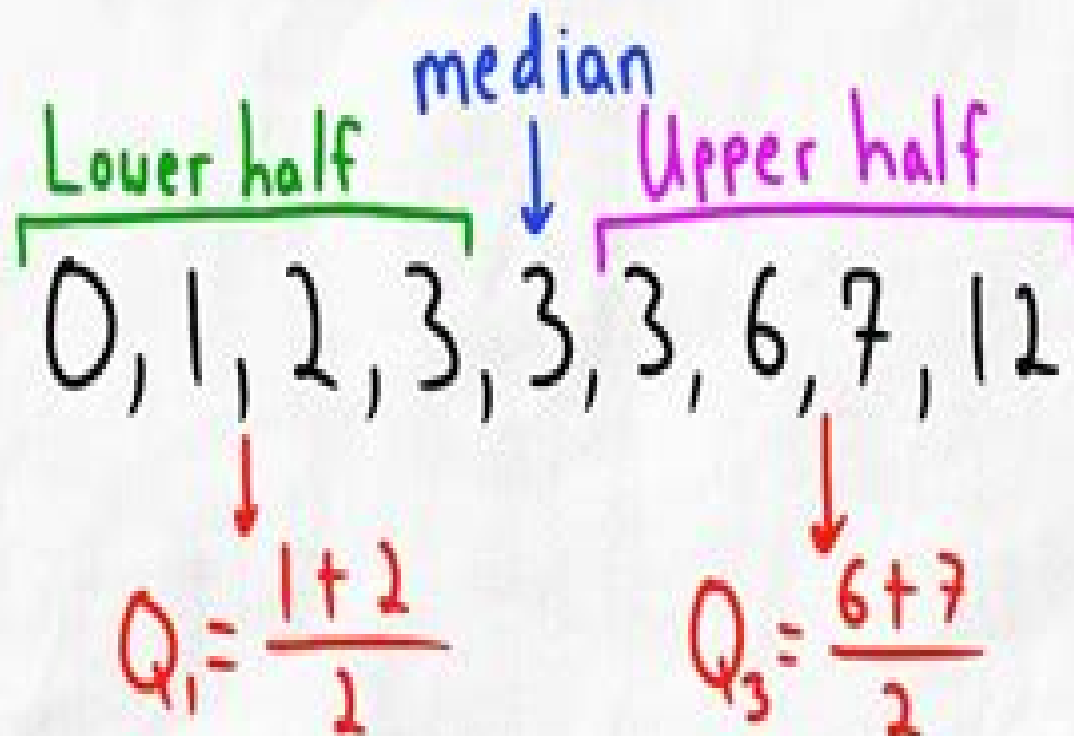 median
Lower half Upper half
0, 1, 2, 3, 3, 3, 6, 7, 12
Q₁ = (1 + 2)/2 Q₃ = (6 + 7)/2